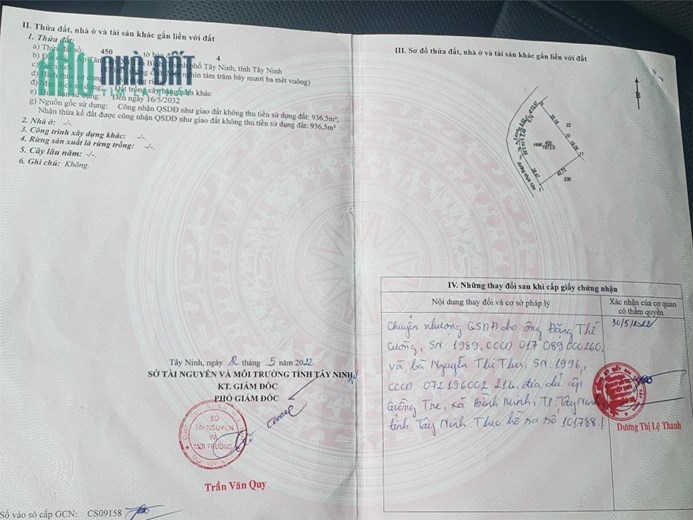 II. Thửa đất, nhà ở và tài sản khác gắn liền với đất
1. Thửa đất:
a) Thửa 450 tờ bản 4
phố Tây Ninh, tỉnh Tây Ninh
nghìn tám trăm bảy mươi ba mét vuông)
khác
Đến ngày 16/5/2032
g) Nguồn gốc sử dụng: Công nhận QSDĐ như giao đất không thu tiền sử dụng đất: 936,5m²;
Nhận thừa kế đất được công nhận QSDĐ như giao đất không thu tiền sử dụng đất: 936,5m²
2. Nhà ở: -/-
3. Công trình xây dựng khác: -/-
4. Rừng sản xuất là rừng trồng: -/-
5. Cây lâu năm: -/-
6. Ghi chú: Không.
NHÀ ĐẤT
Tây Ninh, ngày 12 tháng 5 năm 2022
SỞ TÀI NGUYÊN VÀ MÔI TRƯỜNG TỈNH TÂY NINH
KT. GIÁM ĐỐC
PHÓ GIÁM ĐỐC
SỞ
TÀI NGUYÊN
VÀ
MÔI TRƯỜNG
Trần Văn Quy
Số vào sổ cấp GCN: CS09158
III. Sơ đồ thửa đất, nhà ở và tài sản khác gắn liền với đất
B
IV. Những thay đổi sau khi cấp giấy chứng nhận
Nội dung thay đổi và cơ sở pháp lý
Xác nhận của cơ quan
có thẩm quyền
Chuyển nhượng QSDĐ cho ông Đặng Thế
Cường, SN: 1989, CCCD 017089000260
và bà Nguyễn Thị Thu, SN: 1996,
CCCD 072196002214, địa chỉ ấp
Giồng Tre, xã Bình Minh, TP Tây Ninh
tỉnh Tây Ninh. Theo hồ sơ số 101788/
30/5/2022
Dương Thị Lệ Thanh